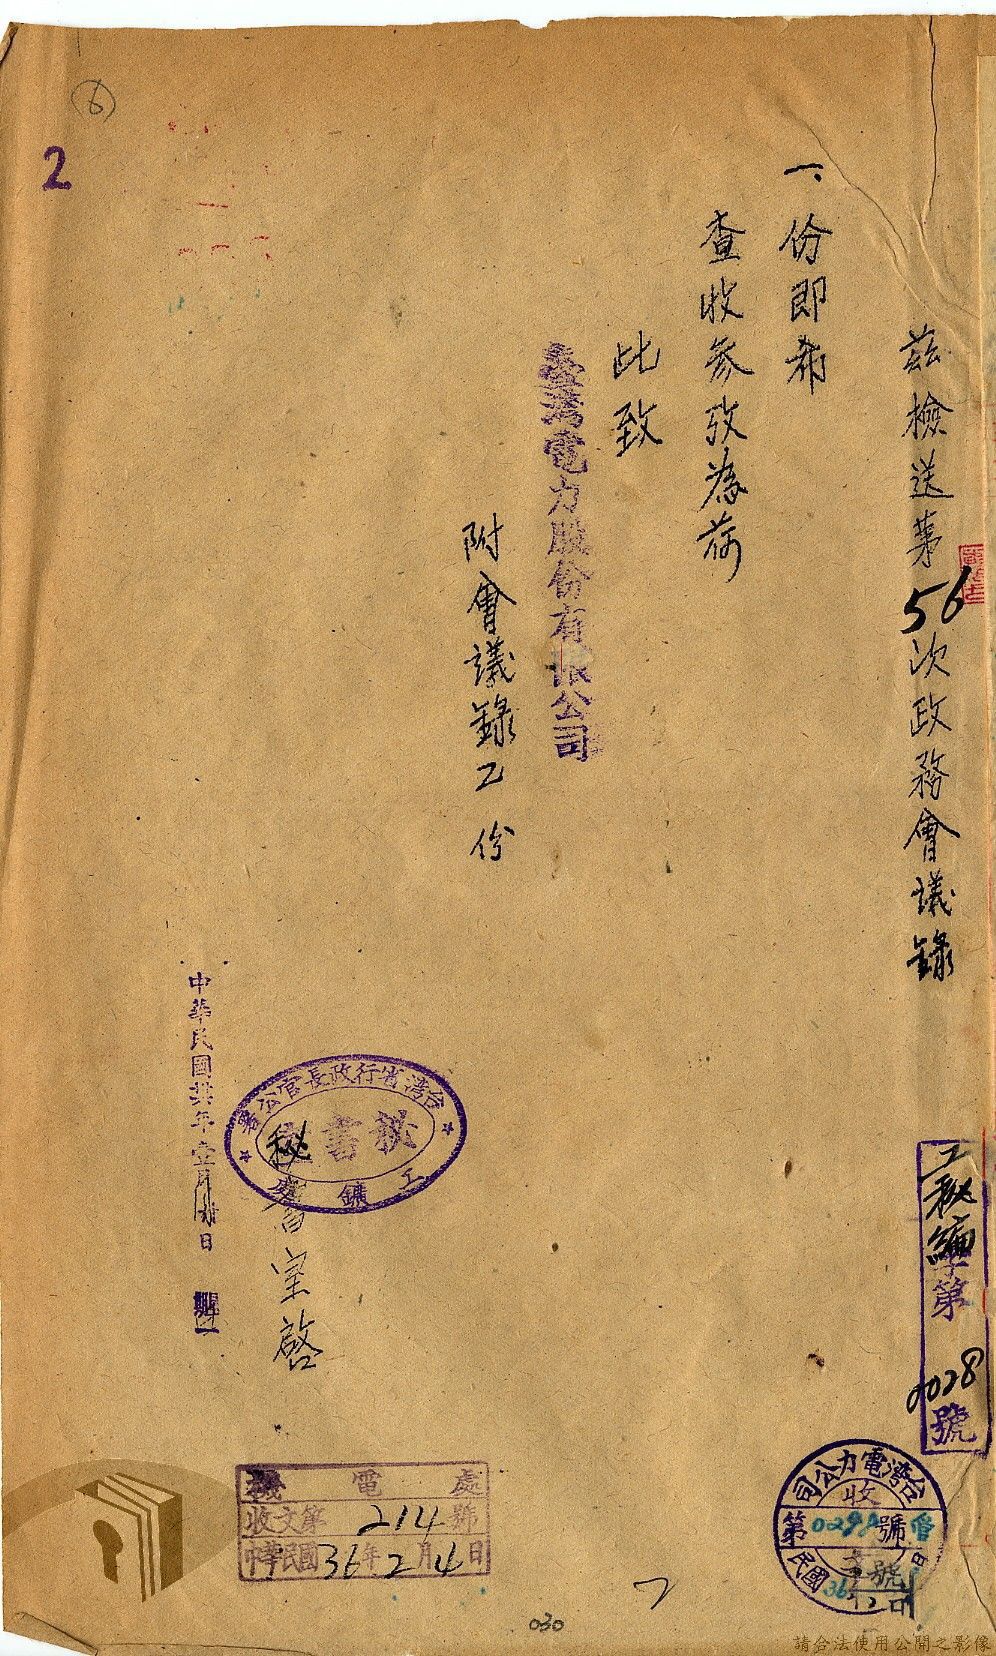 茲檢送第56次政務會議錄
一份即希
查收參攷為荷
此致
臺灣電力股份有限公司
附會議錄乙份
秘書室啓
台灣省行政長官公署
秘書
工鑛處
中華民國卅年壹月 日
工秘編字第0028號
台灣電力公司
收
第 號
民國36
機電處
收文第214號
中華民國36年2月4日
6
2
030
請合法使用公開之影像